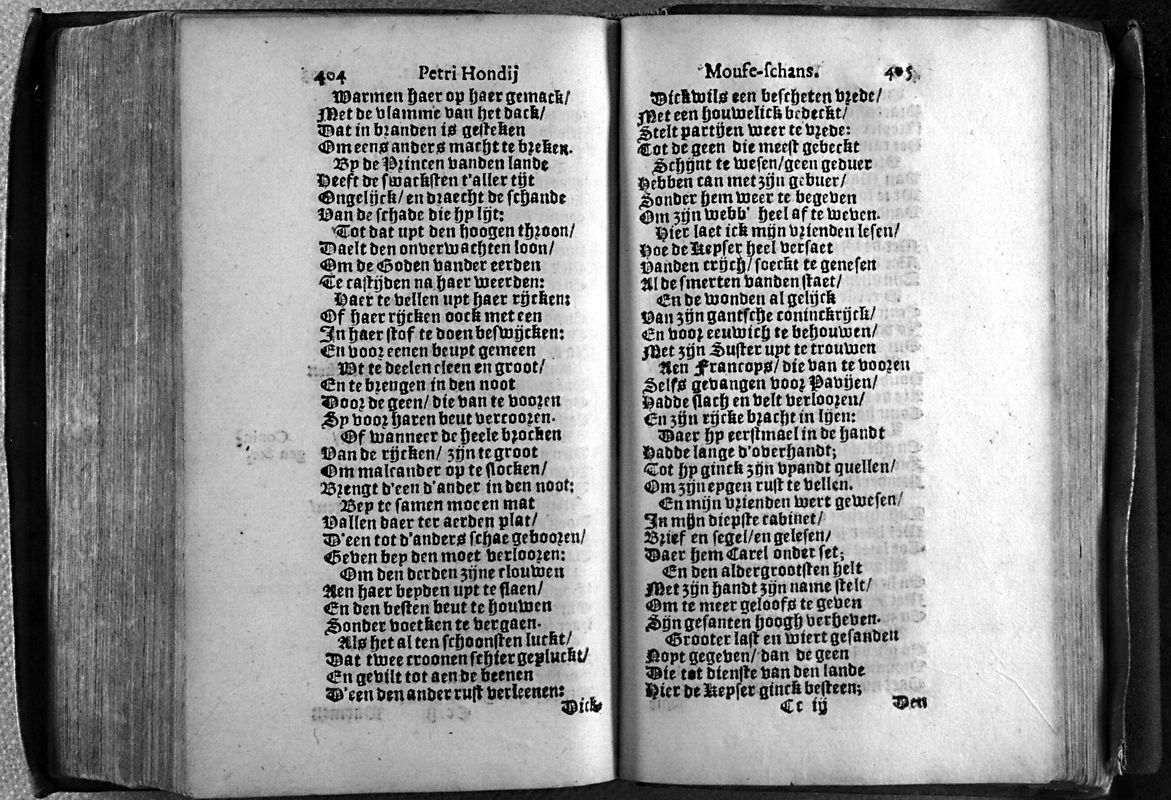 404 Petri Hondij
Warmen haer op haer gemack/
Met de vlamme van het dack/
Dat in branden is gesteken
Om eens anders macht te breken.
By de Princen vanden lande
Heeft de swacksten t'aller tijt
Ongelijck/ en draecht de schande
Van de schade die hy lijt:
Tot dat upt den hoogen throon/
Daelt den onverwachten loon/
Om de Goden vander eerden
Te castijden na haer weerden:
Haer te vellen upt haer rijcken:
Of haer rijcken oock met een
In haer stof te doen beswijcken:
En voor eenen beupt gemeen
Wt te deelen cleen en groot/
En te brengen in den noot
Door de geen/ die van te vooren
Sy voor haren beut vercooren.
Of wanneer de heele brocken
Van de rijcken/ zijn te groot
Om malcander op te slocken/
Brengt d'een d'ander in den noot:
Bey te samen moe en mat
Vallen daer ter aerden plat/
D'een tot d'anders schae gebooren/
Geven bey den moet verlooren:
Om den derden zijne clouwen
Aen haer beyden upt te slaen/
En den besten beut te houwen
Sonder voetken te vergaen.
Als het al ten schoonsten luckt/
Dat twee croonen schier gepluckt/
En gevilt tot aen de beenen
D'een den ander rust verleenen:
Dick-
Moufe-schans. 405
Dickwils een bescheten vrede/
Met een houwelick bedeckt/
Stelt partijen weer te vrede:
Tot de geen die meest gebeckt
Schijnt te wesen/ geen geduer
Hebben can met zijn gebuer/
Sonder hem weer te begeven
Om zijn webb' heel af te weven.
Hier laet ick mijn vrienden lesen/
Hoe de Keyser heel versaet
Vanden crijch/ soeckt te genesen
Al de smerten vanden staet/
En de wonden al gelijck
Van zijn gantsche coninckrijck/
En voor eeuwich te behouwen/
Met zijn Suster upt te trouwen
Aen Francoys/ die van te vooren
Selfs gevangen voor Pavijen/
Hadde slach en velt verlooren/
En zijn rijcke bracht in lijen:
Daer hy eerstmael in de handt
Hadde lange d'overhandt;
Tot hy ginck zijn vyandt quellen/
Om zijn eygen rust te vellen.
En mijn vrienden wert gewesen/
In mijn diepste cabinet/
Brief en segel/ en gelesen/
Daer hem Carel onder set;
En den aldergrootsten helt
Met zijn handt zijn name stelt/
Om te meer geloofs te geven
Sijn gesanten hoogh verheven.
Grooter last en wiert gesanden
Noyt gegeven/ dan de geen
Die tot dienste van den lande
Hier de Keyser ginck besteen;
Cc iij Den